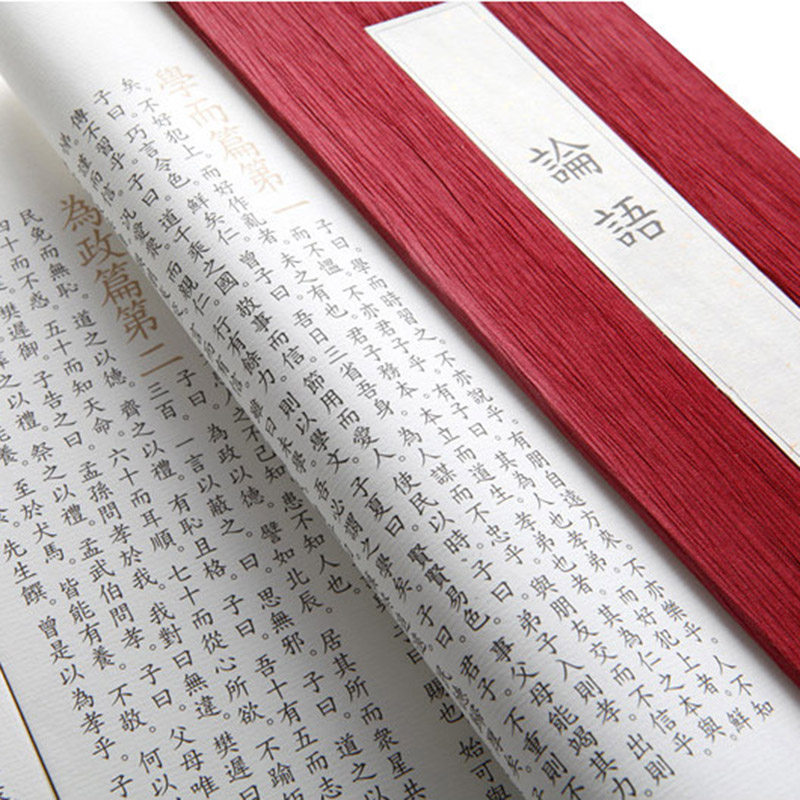 論語
學而篇第一
子曰。學而時習之。不亦說乎。有朋自遠方來。不亦樂乎。人不知
而不慍。不亦君子乎。有子曰。其為人也孝弟。而好犯上者。鮮
矣。不好犯上。而好作亂者。未之有也。君子務本。本立而道生。孝弟也者。其為仁之本與。
子曰。巧言令色。鮮矣仁。曾子曰。吾日三省吾身。為人謀而不忠乎。與朋友交而不信乎。
傳不習乎。子曰。道千乘之國。敬事而信。節用而愛人。使民以時。子曰。弟子入則孝。出則
弟。謹而信。汎愛眾。而親仁。行有餘力。則以學文。子夏曰。賢賢易色。事父母能竭其力。
雖曰未學。吾必謂之學矣。子曰。君子不重則不
賜也。始可與
患不知人也。
為政篇第二
子曰。為政以德。譬如北辰。居其所而眾星共
三百。一言以蔽之。曰。思無邪。子曰。道之以
民免而無恥。道之以德。齊之以禮。有恥且格。子曰。吾十有五而志
四十而不惑。五十而知天命。六十而耳順。七十而從心所欲。不踰
樊遲御。子告之曰。孟孫問孝於我。我對曰無違。樊遲曰
之以禮。祭之以禮。孟武伯問孝。子曰。父母唯
能養。至於犬馬。皆能有養。不敬。何以
先生饌。曾是以為孝乎。子